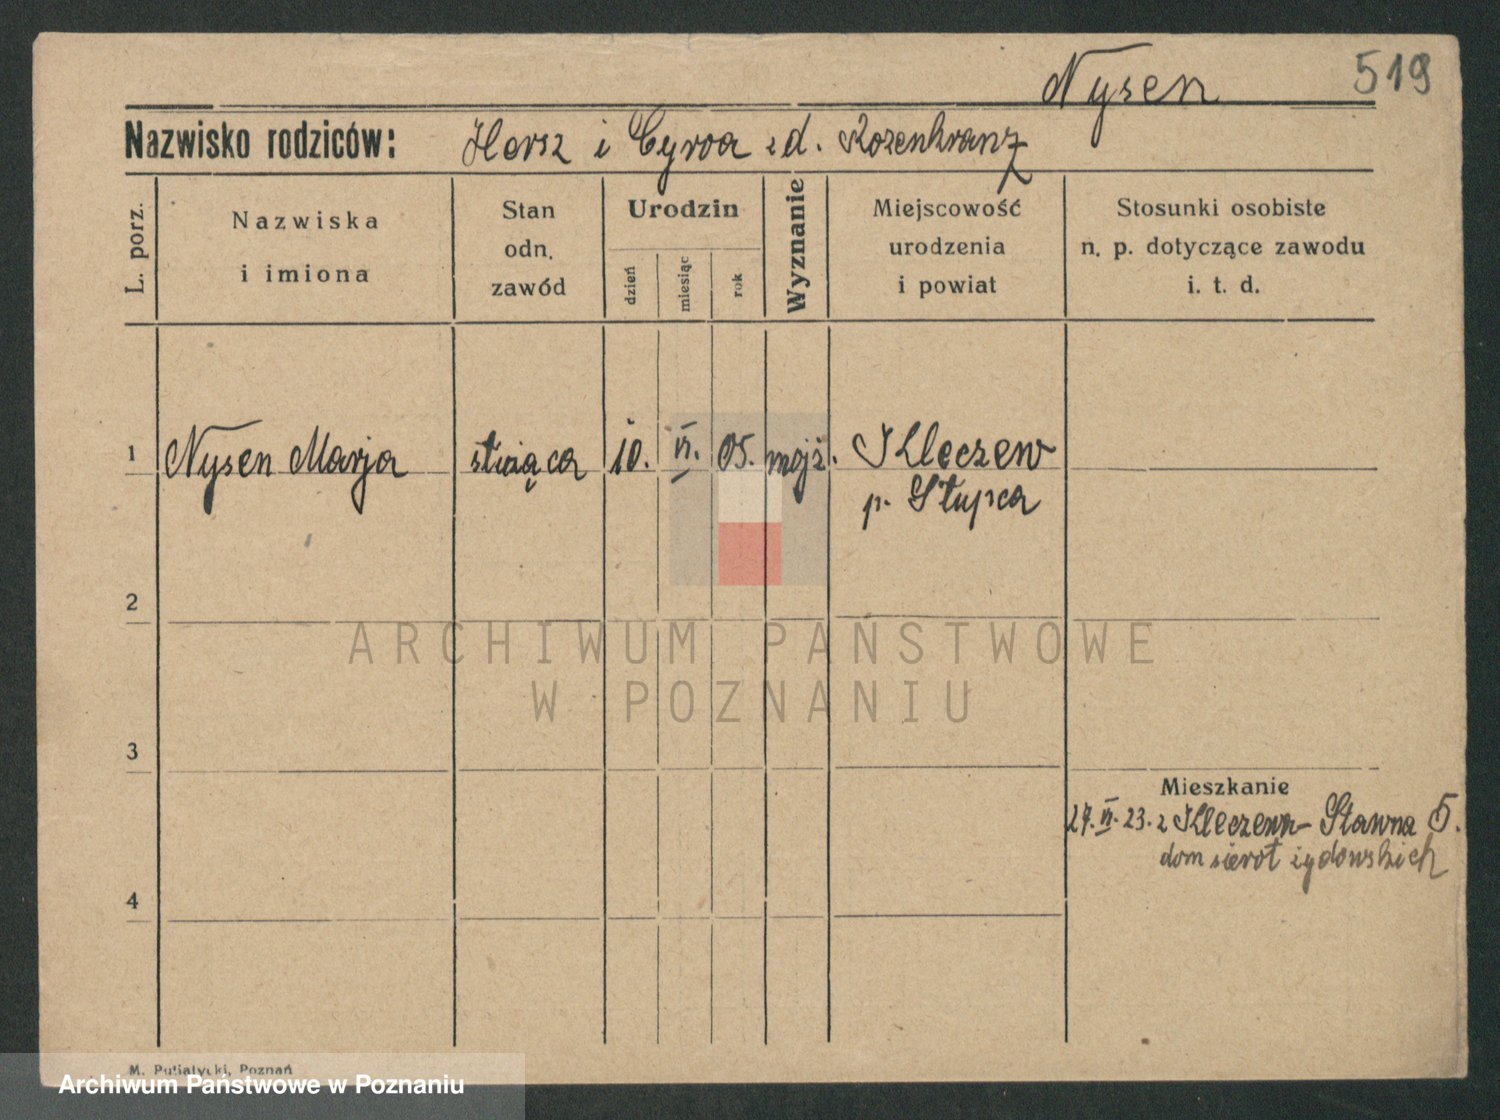 Nysen 519
Nazwisko rodziców: Hersz i Cyroa z d. Rozenkranz
L. porz.
Nazwiska
i imiona
Stan
odn.
zawód
Urodzin
dzień
miesiąc
rok
Wyznanie
Miejscowość
urodzenia
i powiat
Stosunki osobiste
n. p. dotyczące zawodu
i. t. d.
1 Nysen Marja służąca 10. VI. 05. mojż. Kleczew
p. Słupca
2
3
Mieszkanie
27. VI. 23. z Kleczewa - Stawna 5.
dom sierot żydowskich
4
M. Putiatycki, Poznań
ARCHIWUM PAŃSTWOWE
W POZNANIU
Archiwum Państwowe w Poznaniu